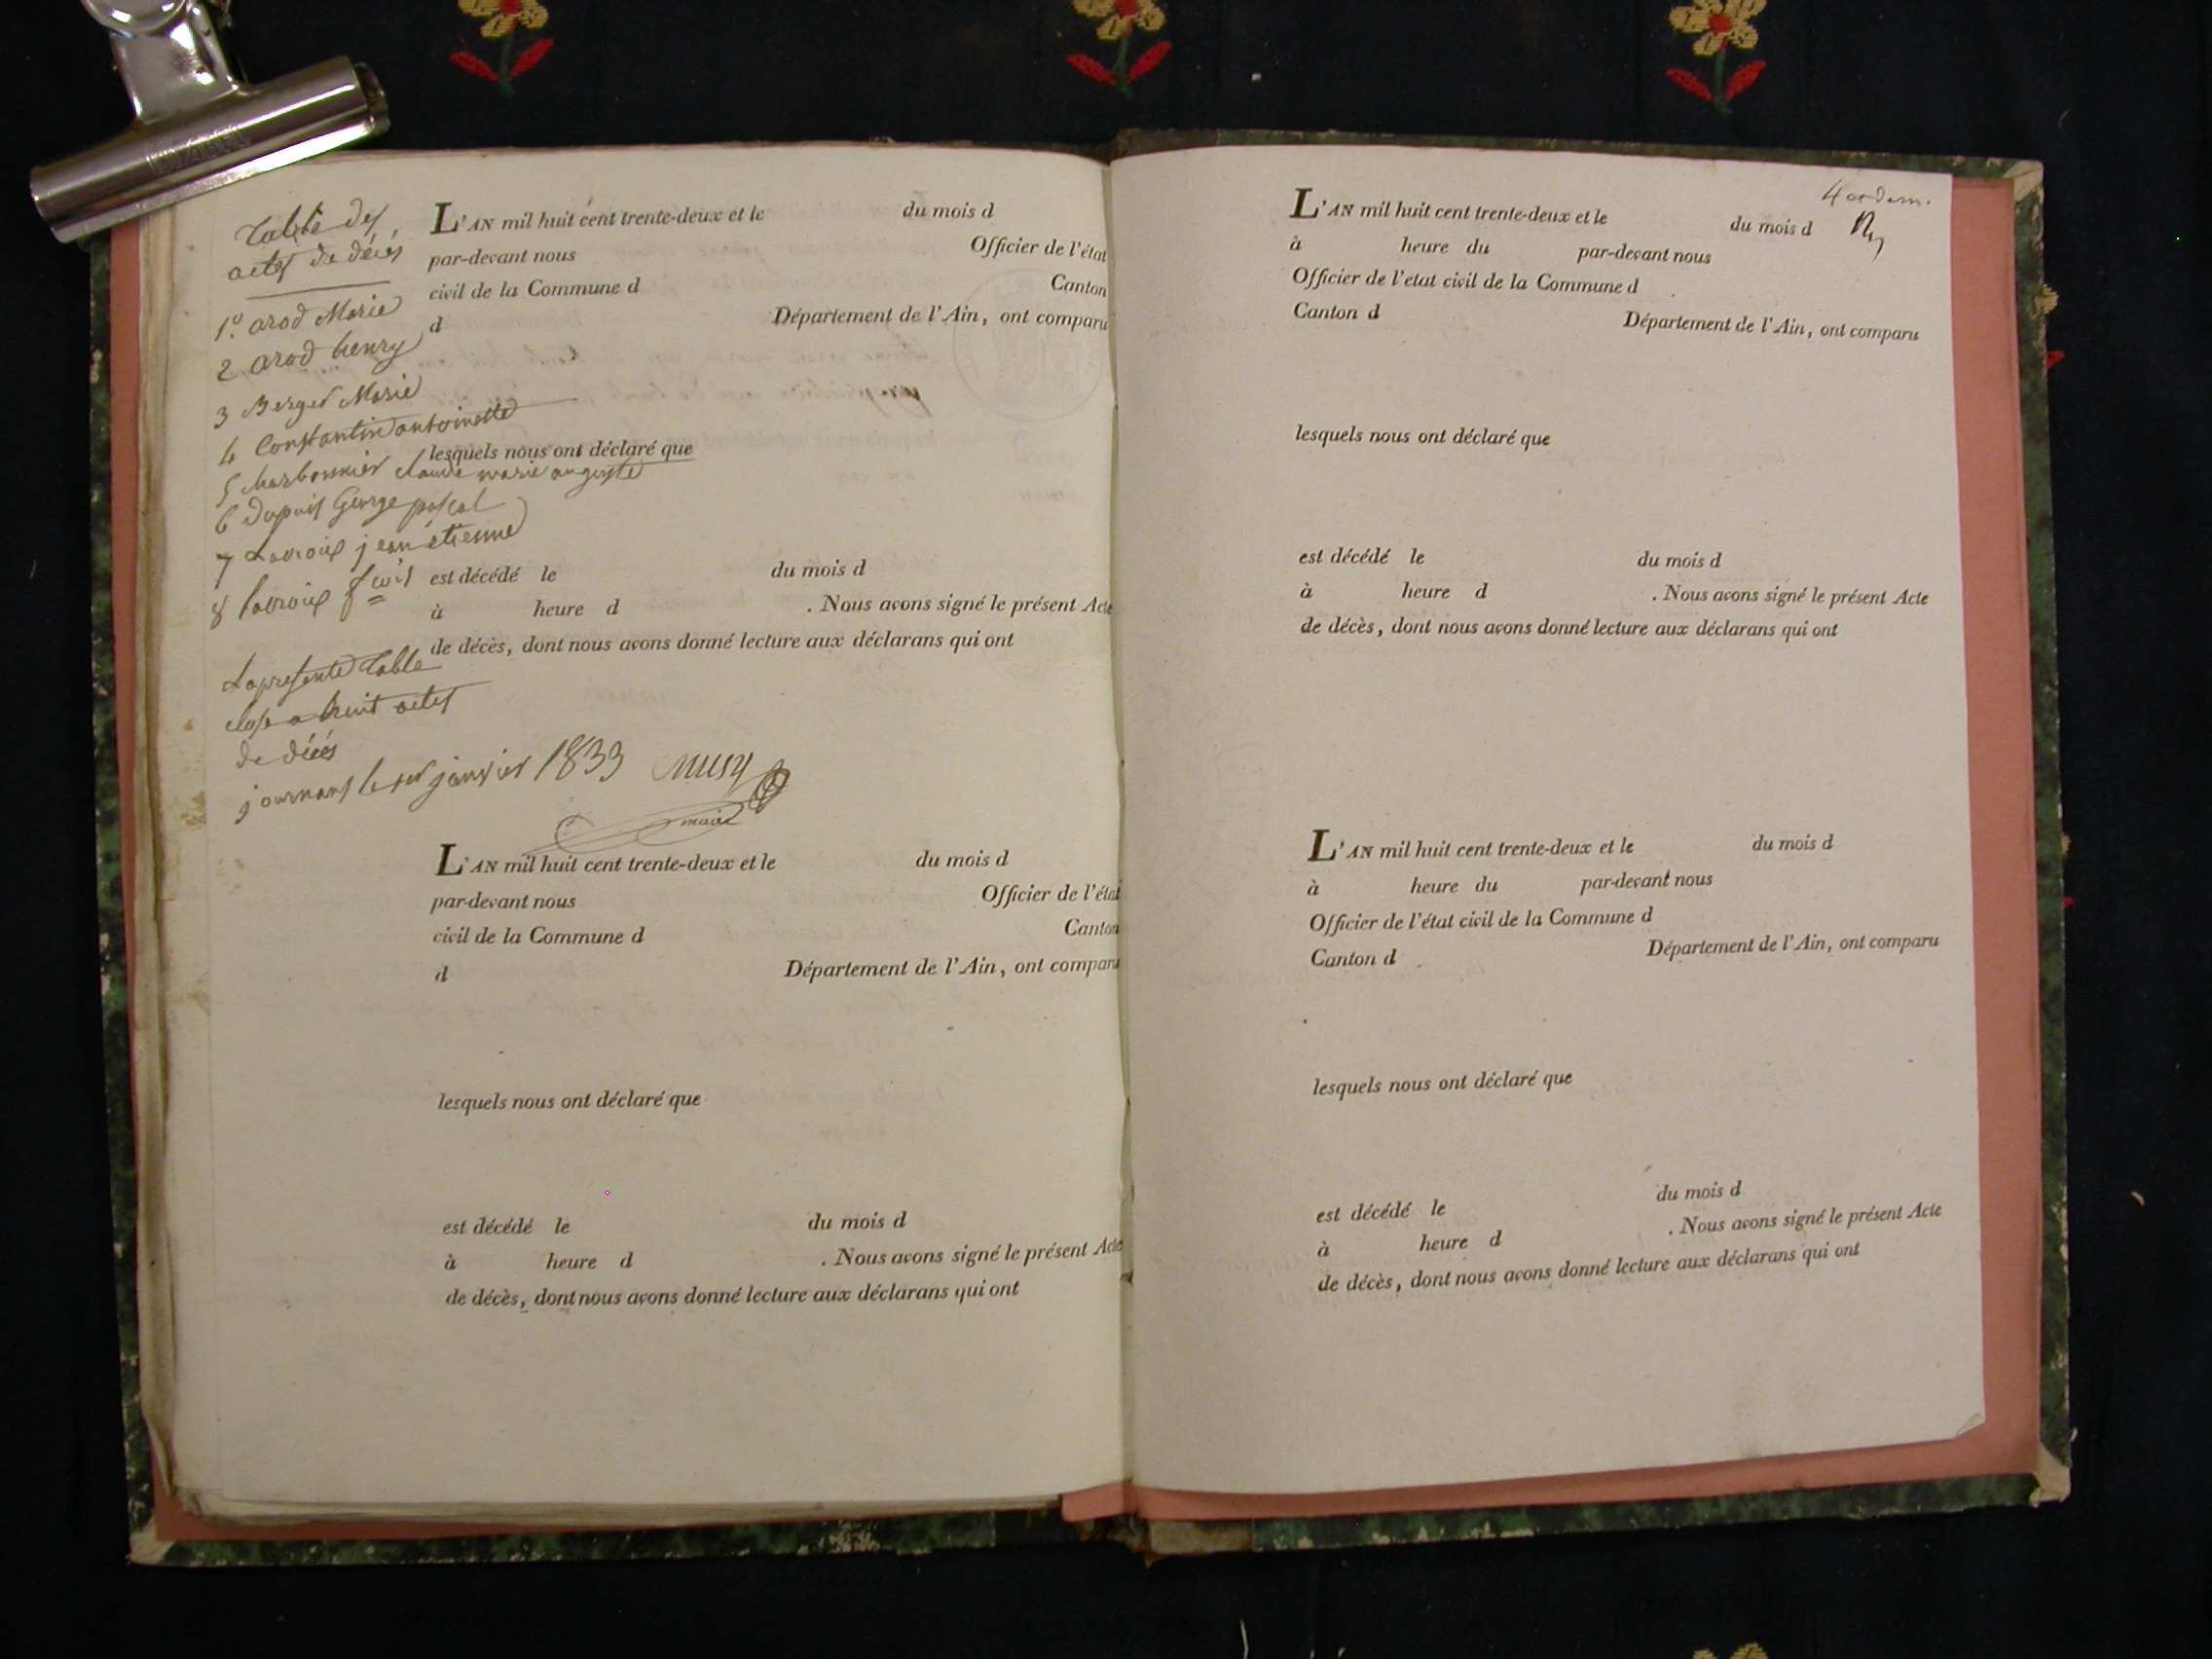 Table des
actes de décés
1.º arod Marie
2 arod henry
3 Berger Marie
4 Constantin antoinette
5 charbonnier claude marie auguste
6 dupuis George pascal
7 Lacroix jean étienne
8 Lacroix fçois
La presente table
close a huit actes
de décés
journans le 1er janvier 1833 Musy
maire
L'AN mil huit cent trente-deux et le du mois d
par-devant nous Officier de l'état
civil de la Commune d Canton
d Département de l'Ain, ont comparu
lesquels nous ont déclaré que
est décédé le du mois d
à heure d . Nous avons signé le présent Acte
de décès, dont nous avons donné lecture aux déclarans qui ont
L'AN mil huit cent trente-deux et le du mois d
par-devant nous Officier de l'état
civil de la Commune d Canton
d Département de l'Ain, ont comparu
lesquels nous ont déclaré que
est décédé le du mois d
à heure d . Nous avons signé le présent Acte
de décès, dont nous avons donné lecture aux déclarans qui ont
L'AN mil huit cent trente-deux et le du mois d
à heure du par-devant nous
Officier de l'etat civil de la Commune d
Canton d Département de l'Ain, ont comparu
lesquels nous ont déclaré que
est décédé le du mois d
à heure d . Nous avons signé le présent Acte
de décès, dont nous avons donné lecture aux déclarans qui ont
L'AN mil huit cent trente-deux et le du mois d
à heure du par-devant nous
Officier de l'état civil de la Commune d
Canton d Département de l'Ain, ont comparu
lesquels nous ont déclaré que
est décédé le du mois d
à heure d . Nous avons signé le présent Acte
de décès, dont nous avons donné lecture aux déclarans qui ont